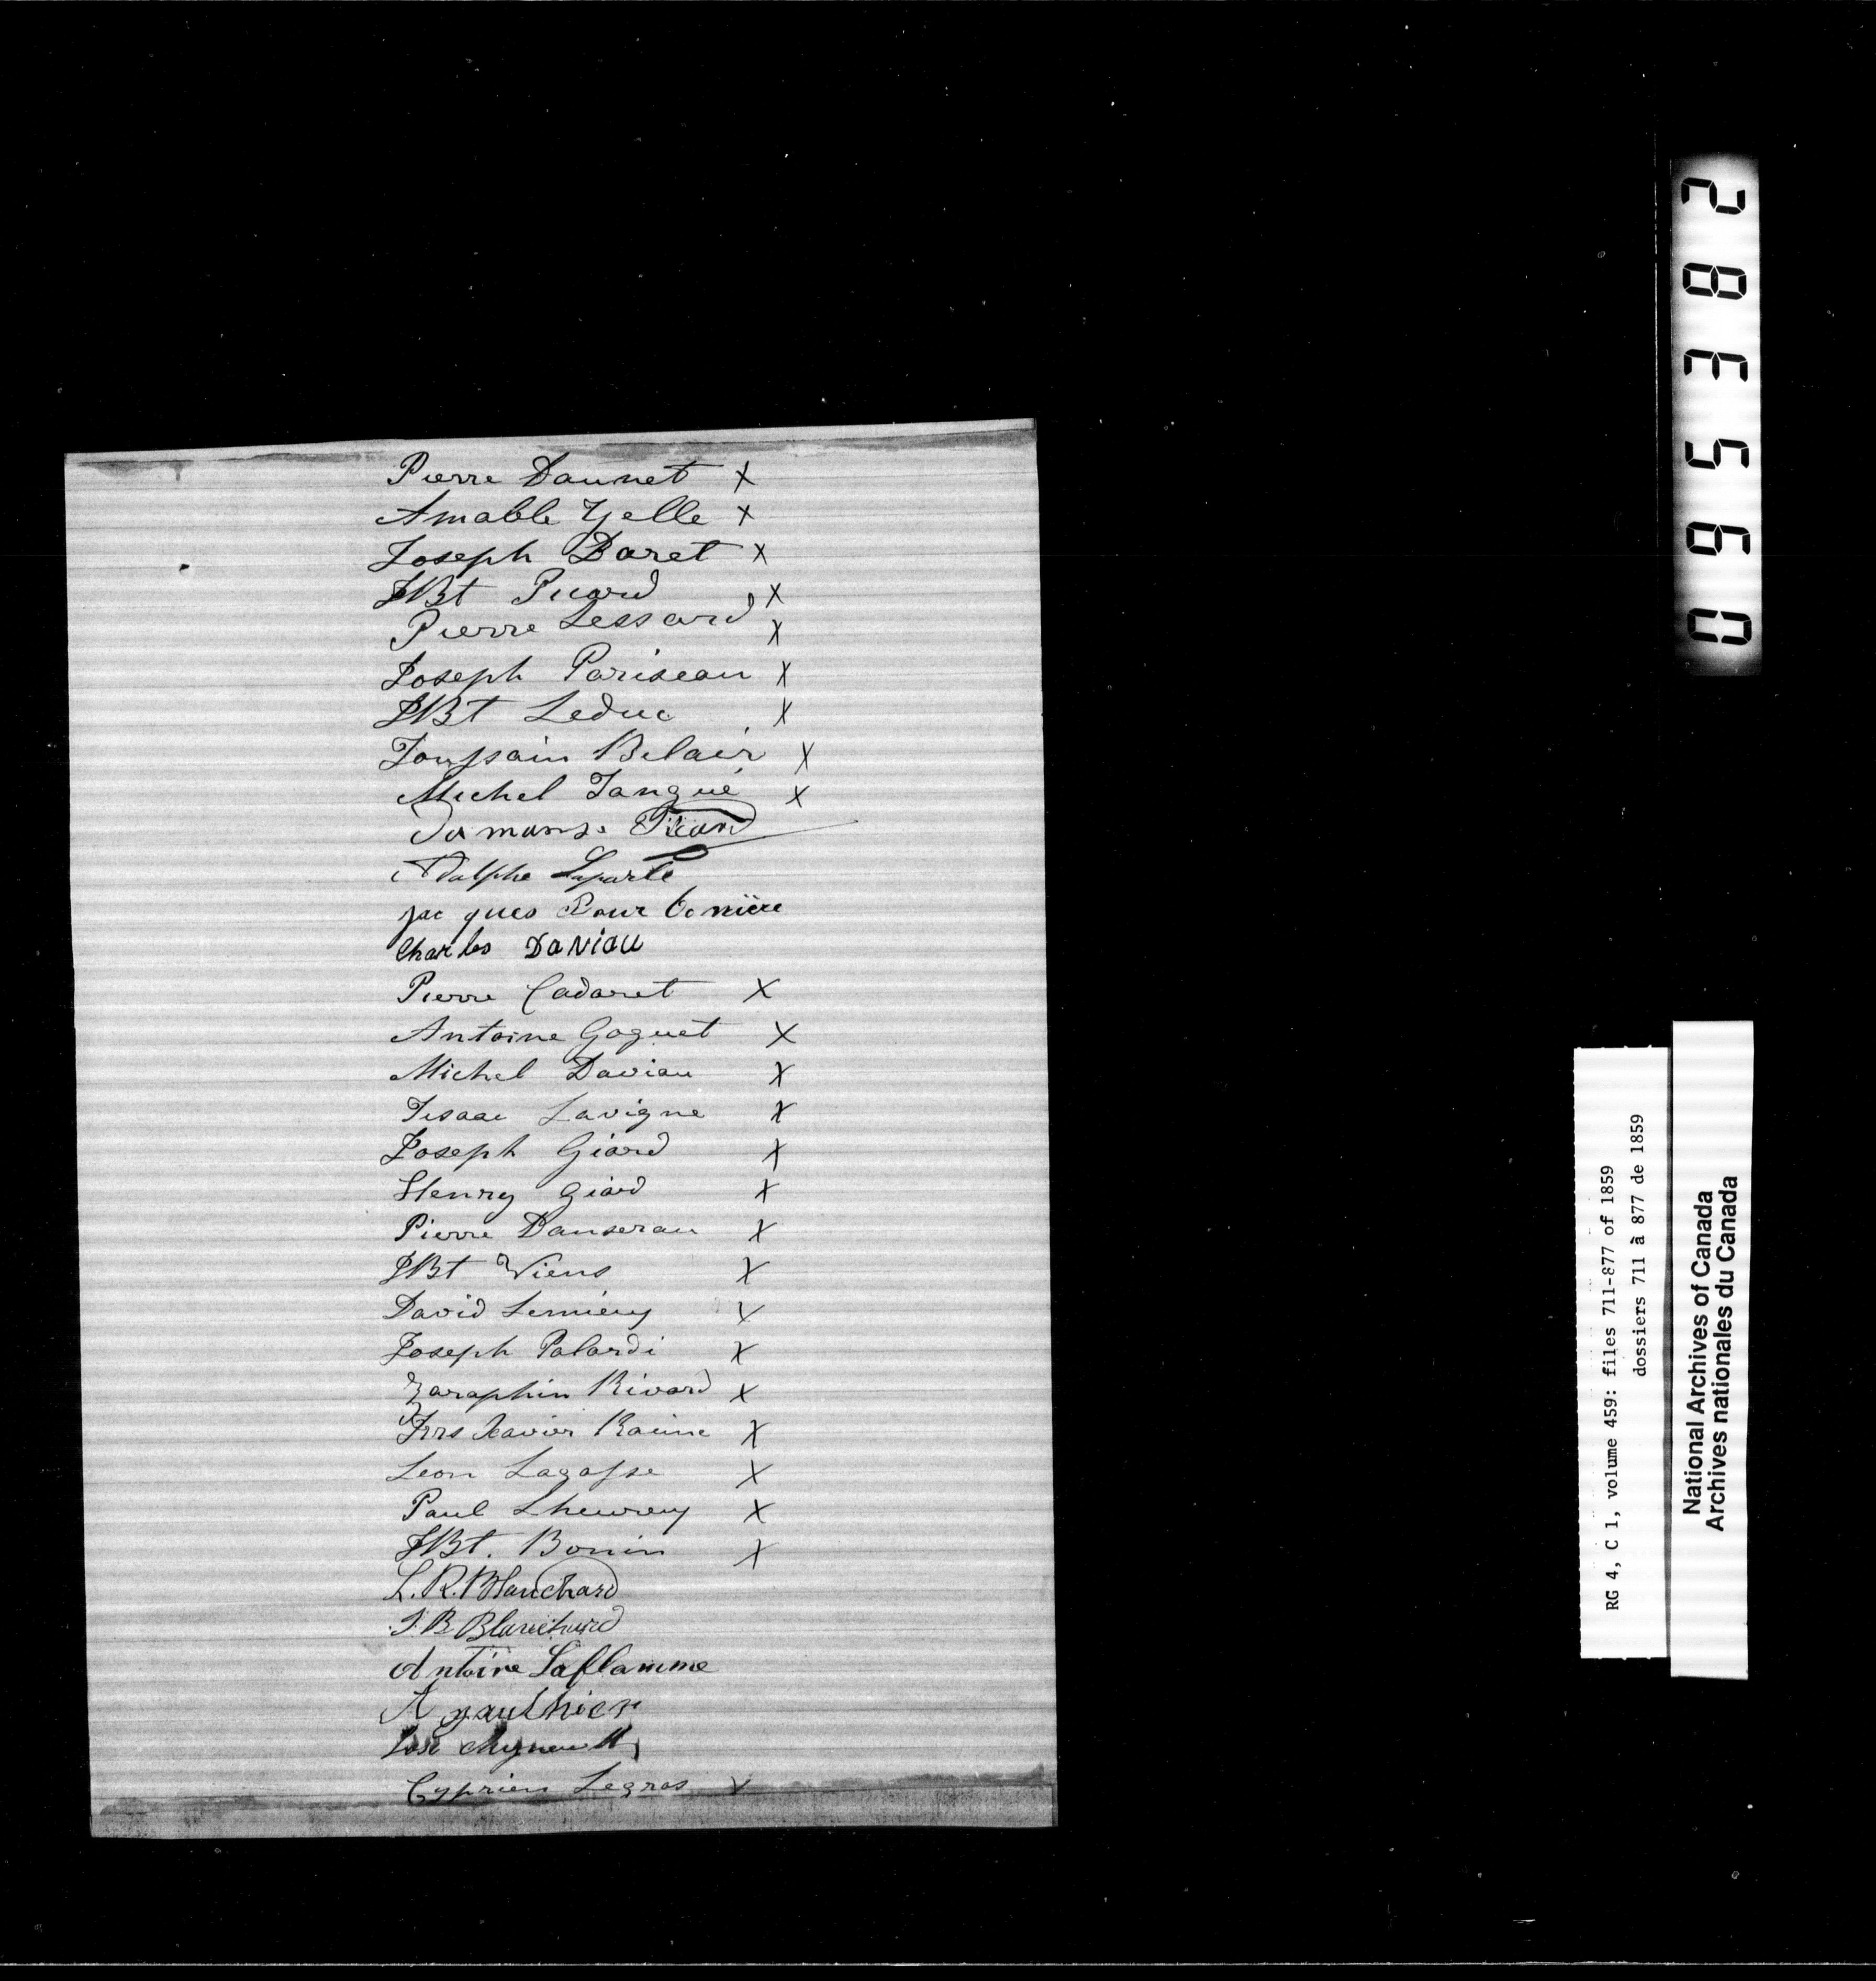 Pierre Daunet X
Amable Yelle X
Joseph Daret X
JBt Picard X
Pierre Lessard X
Joseph Pariseau X
JBt Leduc X
Toussain Belair X
Michel Tangué X
Damanse Picard
Adolphe Laporte
jacques Pour bonnière
Charles DaViau
Pierre Cadaret X
Antoine Goguet X
Michel Daviau X
Isaac Lavigne X
Joseph Giard X
Henry Giard X
Pierre Danserau X
JBt Viens X
David Lemieux X
Joseph Palardi X
Zaraphin Rivard X
Frs Xavier Racine X
Leon Lagasse X
Paul Lheureux X
JBt. Bonin X
L. R. Blanchard
J. B Blanchard
Antoine Laflamme
A gaulhier
Cyprien Legros X
095382
RG 4, C 1, volume 459: files 711-877 of 1859
dossiers 711 à 877 de 1859
National Archives of Canada
Archives nationales du Canada